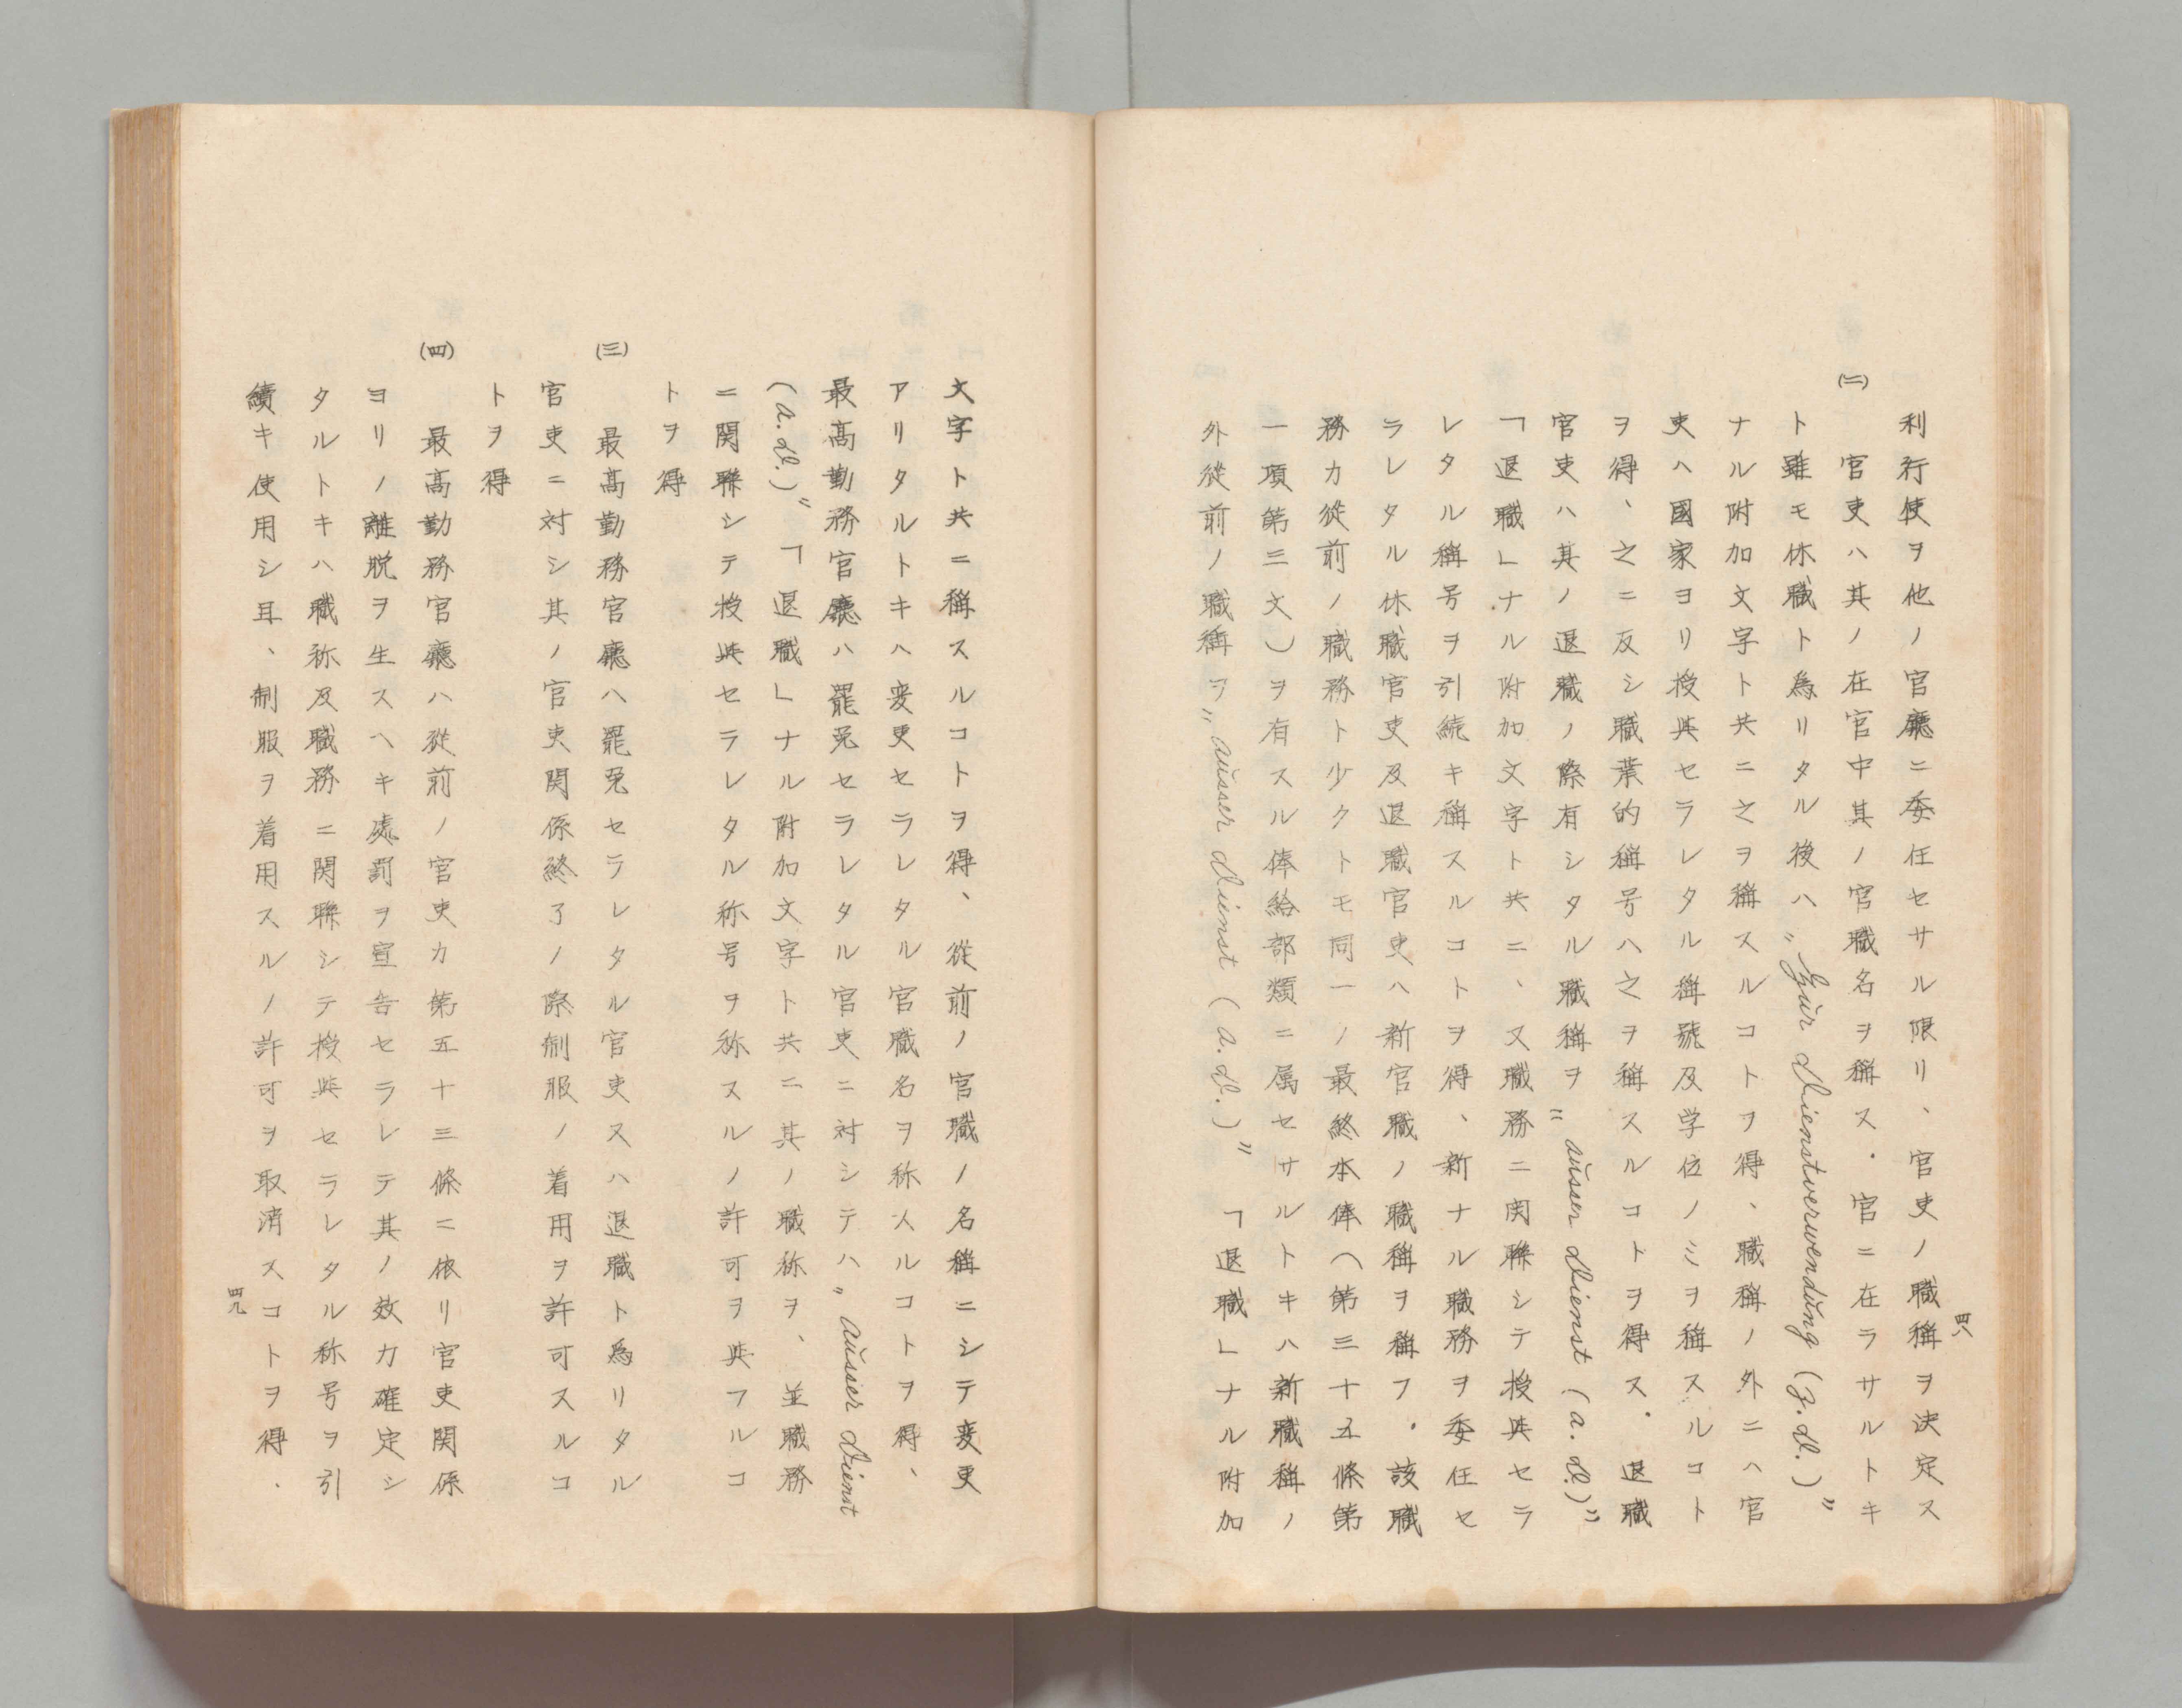 利行使ヲ他ノ官廳ニ委任セサル限リ、官吏ノ職稱ヲ決定ス
(二) 官吏ハ其ノ在官中其ノ官職名ヲ稱ス．官ニ在ラサルトキ
ト雖モ休職ト為リタル後ハ〝Zür Dienstverwendŭng (z.D.)〞
ナル附加文字ト共ニ之ヲ稱スルコトヲ得、職稱ノ外ニハ官
吏ハ國家ヨリ授與セラレタル稱號及学位ノミヲ稱スルコト
ヲ得、之ニ反シ職業的稱号ハ之ヲ稱スルコトヲ得ス．退職
官吏ハ其ノ退職ノ際有シタル職稱ヲ〝aŭsser Dienst (a.D.)〞
「退職」ナル附加文字ト共ニ、又職務ニ関聯シテ授與セラ
レタル稱号ヲ引続キ稱スルコトヲ得、新ナル職務ヲ委任セ
ラレタル休職官吏及退職官吏ハ新官職ノ職稱ヲ稱フ．該職
務カ従前ノ職務ト少クトモ同一ノ最終本俸(第三十五條第
一項第三文)ヲ有スル俸給部類ニ属セサルトキハ新職稱ノ
外従前ノ職稱ヲ〝aŭsser Dienst (a.D.)〞「退職」ナル附加
四八
文字ト共ニ稱スルコトヲ得、従前ノ官職ノ名稱ニシテ変更
アリタルトキハ変更セラレタル官職名ヲ称スルコトヲ得、
最高勤務官廳ハ罷免セラレタル官吏ニ対シテハ〝aŭsser Dienst
(a.D.)〞「退職」ナル附加文字ト共ニ其ノ職称ヲ、並職務
ニ関聯シテ授與セラレタル称号ヲ称スルノ許可ヲ與フルコ
トヲ得
(三) 最高勤務官廳ハ罷免セラレタル官吏又ハ退職ト為リタル
官吏ニ対シ其ノ官吏関係終了ノ際制服ノ着用ヲ許可スルコ
トヲ得
(四) 最高勤務官廳ハ従前ノ官吏カ第五十三條ニ依リ官吏関係
ヨリノ離脱ヲ生スヘキ處罰ヲ宣告セラレテ其ノ效力確定シ
タルトキハ職称及職務ニ関聯シテ授與セラレタル称号ヲ引
續キ使用シ且、制服ヲ着用スルノ許可ヲ取消スコトヲ得．
四九